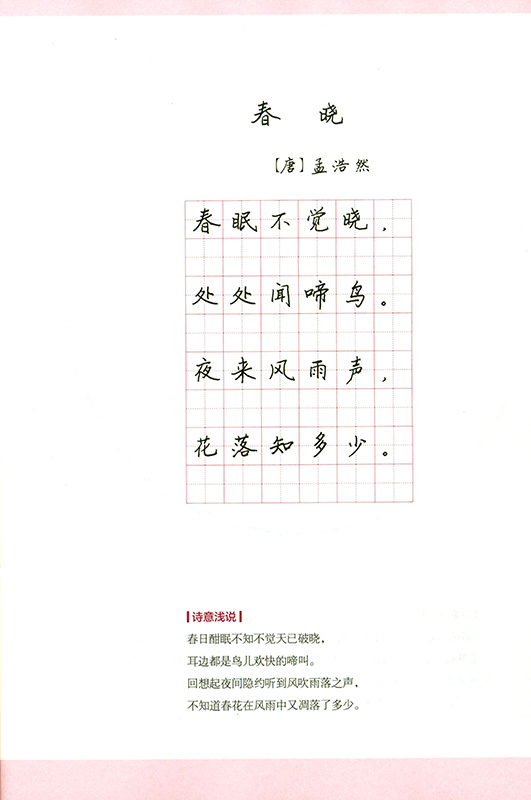 春 晓
【唐】孟浩然
春眠不觉晓，
处处闻啼鸟。
夜来风雨声，
花落知多少。
诗意浅说
春日酣眠不知不觉天已破晓，
耳边都是鸟儿欢快的啼叫。
回想起夜间隐约听到风吹雨落之声，
不知道春花在风雨中又凋落了多少。